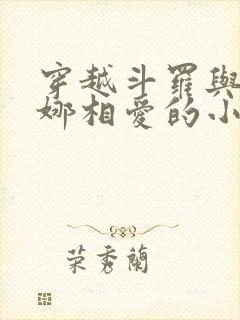 穿越斗羅與
娜相愛的小
荣秀蘭